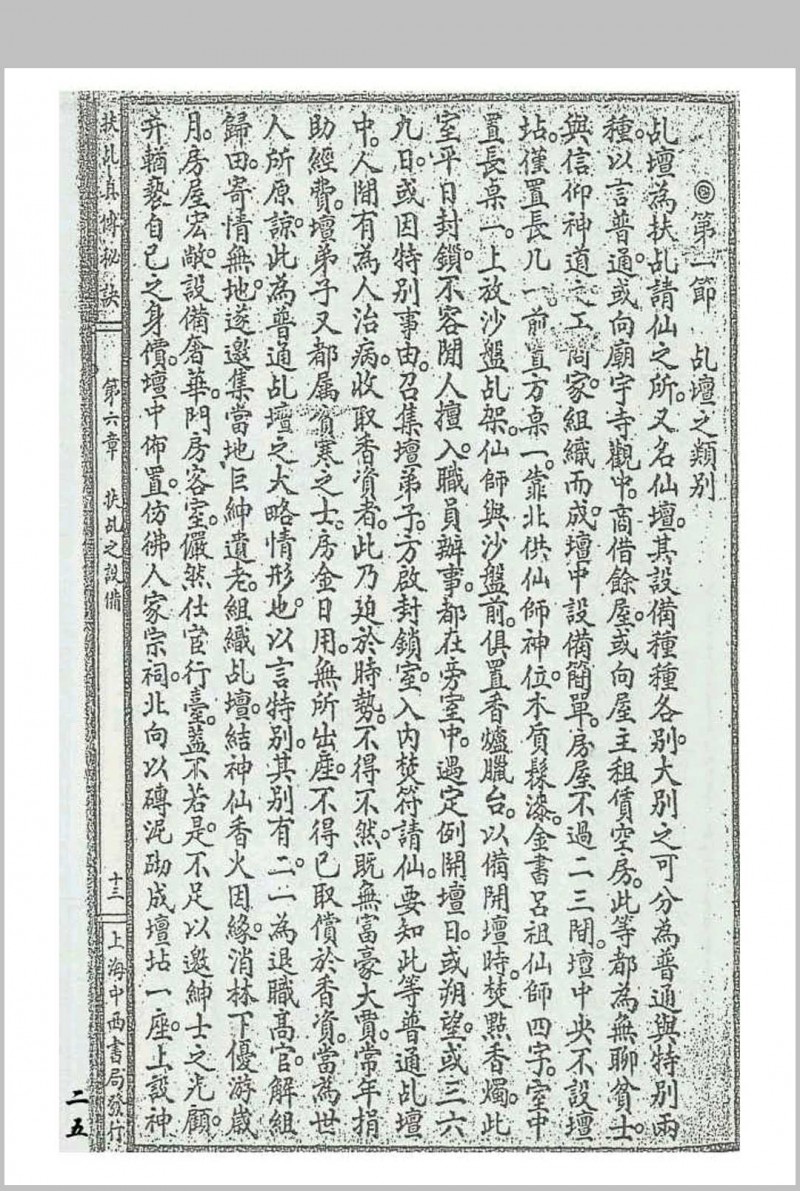 ◎第一節　乩壇之類別
乩壇為扶乩請仙之所。又名仙壇。其設備種種各別。大別之可分為普通與特別兩
種。以言普通。或向廟宇寺觀中。商借餘屋。或向屋主租賃空房。此等都為無聊貧士。
與信仰神道之工商家。組織而成。壇中設備簡單。房屋不過二三間。壇中央不設壇
坫。僅置長几一。前置方桌一。靠北供仙師神位。木質髹漆。金書呂祖仙師四字。室中
置長桌一。上放沙盤乩架。仙師與沙盤前。俱置香爐臘台。以備開壇時。焚點香燭。此
室平日封鎖。不容閒人擅入。職員辦事。都在旁室中。遇定例開壇日。或朔望。或三六
九日。或因特別事由。召集壇弟子。方啟封鎖室。入內焚符請仙。要知此等普通乩壇
中。人間有為人治病。收取香資者。此乃迫於時勢。不得不然。既無富豪大賈。常年捐
助經費。壇弟子又都属貧寒之士。房金日用。無所出産。不得已取償於香資。當為世
人所原諒。此為普通乩壇之大略情形也。以言特別。其別有二。一為退職高官。解組
歸田。寄情無地。遂邀集當地巨紳遺老。組織乩壇。結神仙香火因緣。消林下優游歲
月。房屋宏敞。設備奢華。門房客室。儼然仕宦行臺。蓋不若是。不足以邀紳士之光顧。
并輶褻自己之身價。壇中佈置。仿彿人家宗祠。北向以磚泥砌成壇坫一座。上設神
扶乩真傳秘訣
第六章　扶乩之設備
十三
上海中西書局發行
二五